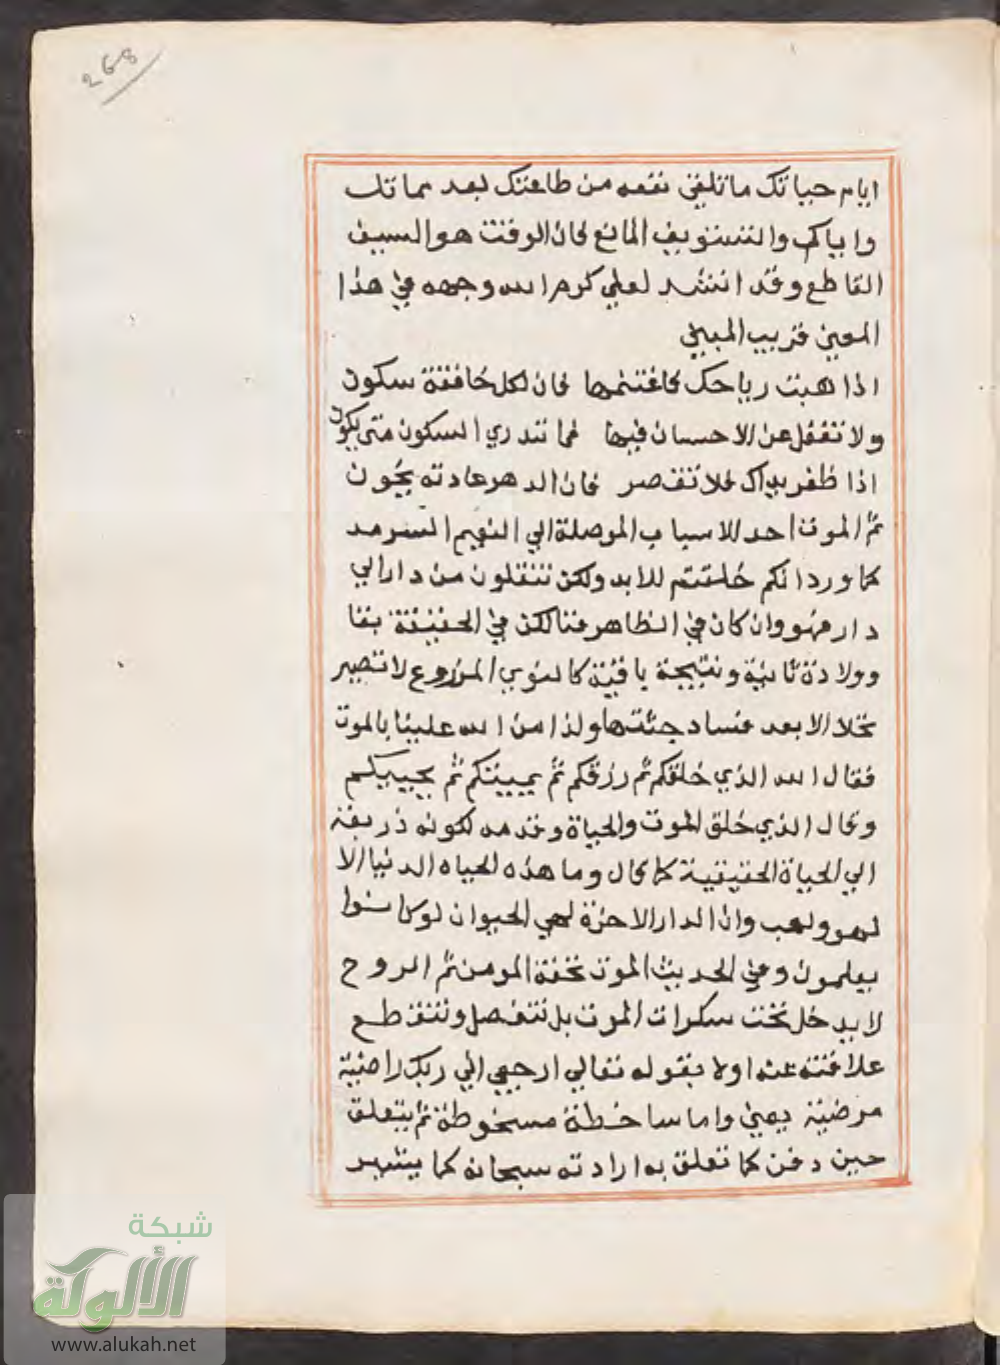 268
ايام حياتك ما تلقى نفعه من طاعتك بعد مماتك
واياكم والتسويف المانع فان الوقت هو السيف
القاطع وقد انشد لعلي كرم الله وجهه في هذا
المعنى قريب المبنى
اذا هبت رياحك فاغتنمها فان لكل خافقة سكون
ولا تغفل عن الاحسان فيها فما تدري السكون متى يكون
اذا ظفر يداك فلا تقصر فان الدهر عادته يخون
ثم الموت احد الاسباب الموصلة الى النعيم السرمد
كما ورد انكم خلقتم للابد ولكن تنتقلون من دار الى
دار فهو وان كان في الظاهر فنا لكن في الحقيقة بقا
وولادة ثانية ونتيجة باقية كالنوى المزروع لا تصير
نخلا الا بعد فساد جثتها ولذا من الله علينا بالموت
فقال الله الذي خلقكم ثم رزقكم ثم يميتكم ثم يحييكم
وقال الذي خلق الموت والحياة وقدمه لكونه ذريعة
الى الحياة الحقيقية كما قال وما هذه الحياه الدنيا الا
لهو ولعب وان الدار الاخرة لهي الحيوان لو كانوا
يعلمون وفي الحديث الموت تحفة المومن ثم الروح
لا يدخل تحت سكرات الموت بل تنفصل وتنقطع
علاقته عنه اولا بقوله تعالى ارجعي الى ربك راضية
مرضية يعني واما ساخطة مسخوطة ثم يتعلق
حين دفن كما تعلق به ارادته سبحانه كما يشهر
شبكة
الألوكة
www.alukah.net